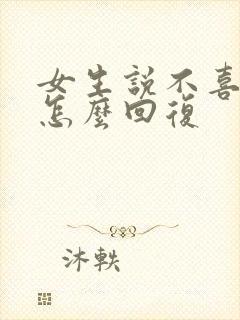 女生説不喜
怎麼回復
沐軼